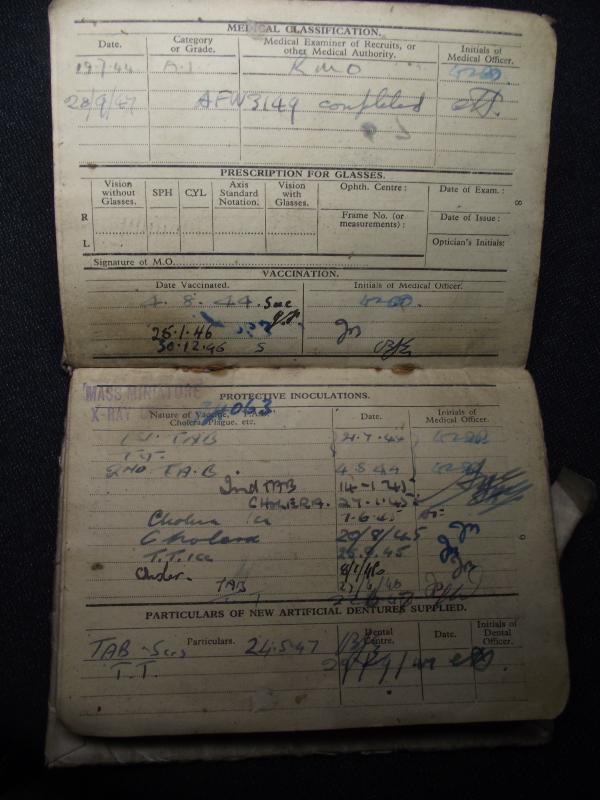 MEDICAL CLASSIFICATION.
Date. Category or Grade. Medical Examiner of Recruits, or other Medical Authority. Initials of Medical Officer.
19.7.44 A.1 R M O
28/9/47 AFW3149 completed
PRESCRIPTION FOR GLASSES.
Vision without Glasses. SPH CYL. Axis Standard Notation. Vision with Glasses. Ophth. Centre: Date of Exam.:
R Frame No. (or measurements): Date of Issue:
L Optician's Initials:
8
Signature of M.O.
VACCINATION.
Date Vaccinated. Initials of Medical Officer.
4.8.44
25.1.46
30.12.46 S
MASS MINIATURE
X-RAY
PROTECTIVE INOCULATIONS.
Nature of Vaccine, T.A.B., Cholera, Plague, etc. Date. Initials of Medical Officer.
063
TAB
T.T.
2ND. T.A.B. 4.8.44
2nd TAB 14-1-45
CHOLERA 27.1.45
Cholera 1cc 7.6.45
Cholera 29/8/45
T.T. 1cc 25.9.45
Choler.
TAB
9
PARTICULARS OF NEW ARTIFICIAL DENTURES SUPPLIED.
Particulars. Dental Centre. Date. Initials of Dental Officer.
TAB 24.5.47
T.T.